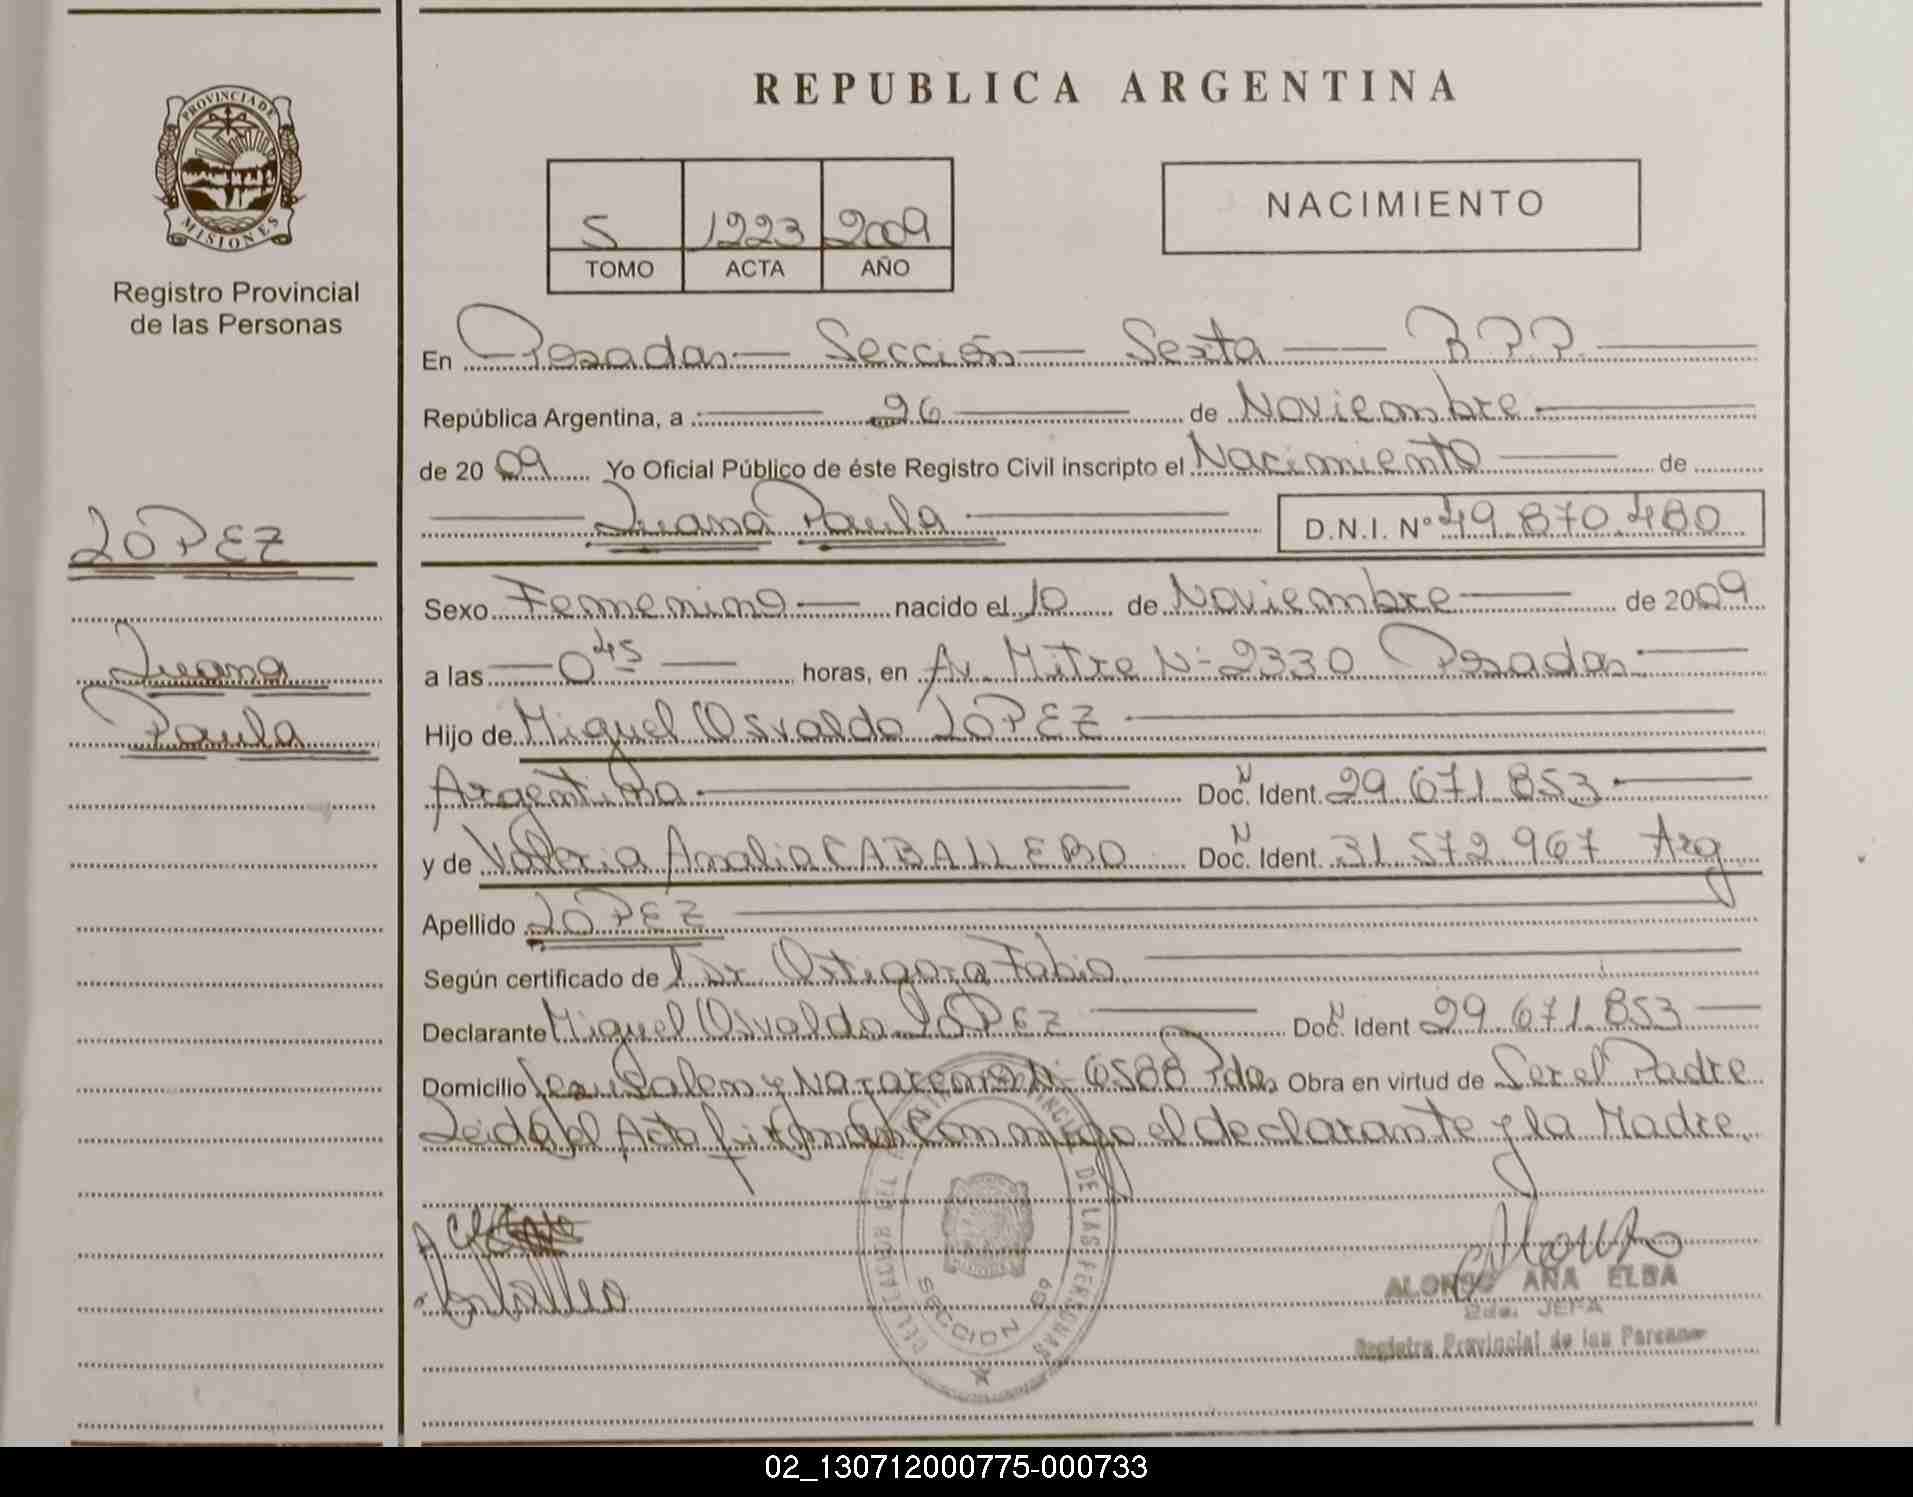 REPUBLICA ARGENTINA
PROVINCIA DE
MISIONES
Registro Provincial
de las Personas
5 1223 2009
TOMO ACTA AÑO
NACIMIENTO
En Posadas — Sección — Sexta — R.P.P. —
República Argentina, a — 26 — de Noviembre —
de 2009 Yo Oficial Público de éste Registro Civil inscripto el Nacimiento — de
— Juana Paula — D.N.I. Nº 49.870.480
LÓPEZ
Juana
Paula
Sexo Femenino — nacido el 10 de Noviembre — de 2009
a las — 0 45 — horas, en Av. Mitre Nº 2330 Posadas —
Hijo de Miguel Osvaldo LÓPEZ —
Argentina — Doc. N Ident. 29.671.853 —
y de Valeria Amalia CABALLERO Doc. N Ident. 31.572.967 Arg
Apellido LÓPEZ —
Según certificado de Dr. Ortigoza Fabio —
Declarante Miguel Osvaldo LÓPEZ — Doc. N Ident 29.671.853 —
Domicilio Jerusalem y Nazareno Nº 6588 Pdas Obra en virtud de Ser el Padre
Leida el Acta firman conmigo el declarante y la Madre.
DE LAS PERSONAS
SECCION 6º
ALONSO ANA ELBA
2da. JEFA
Registro Provincial de las Personas
02_130712000775-000733